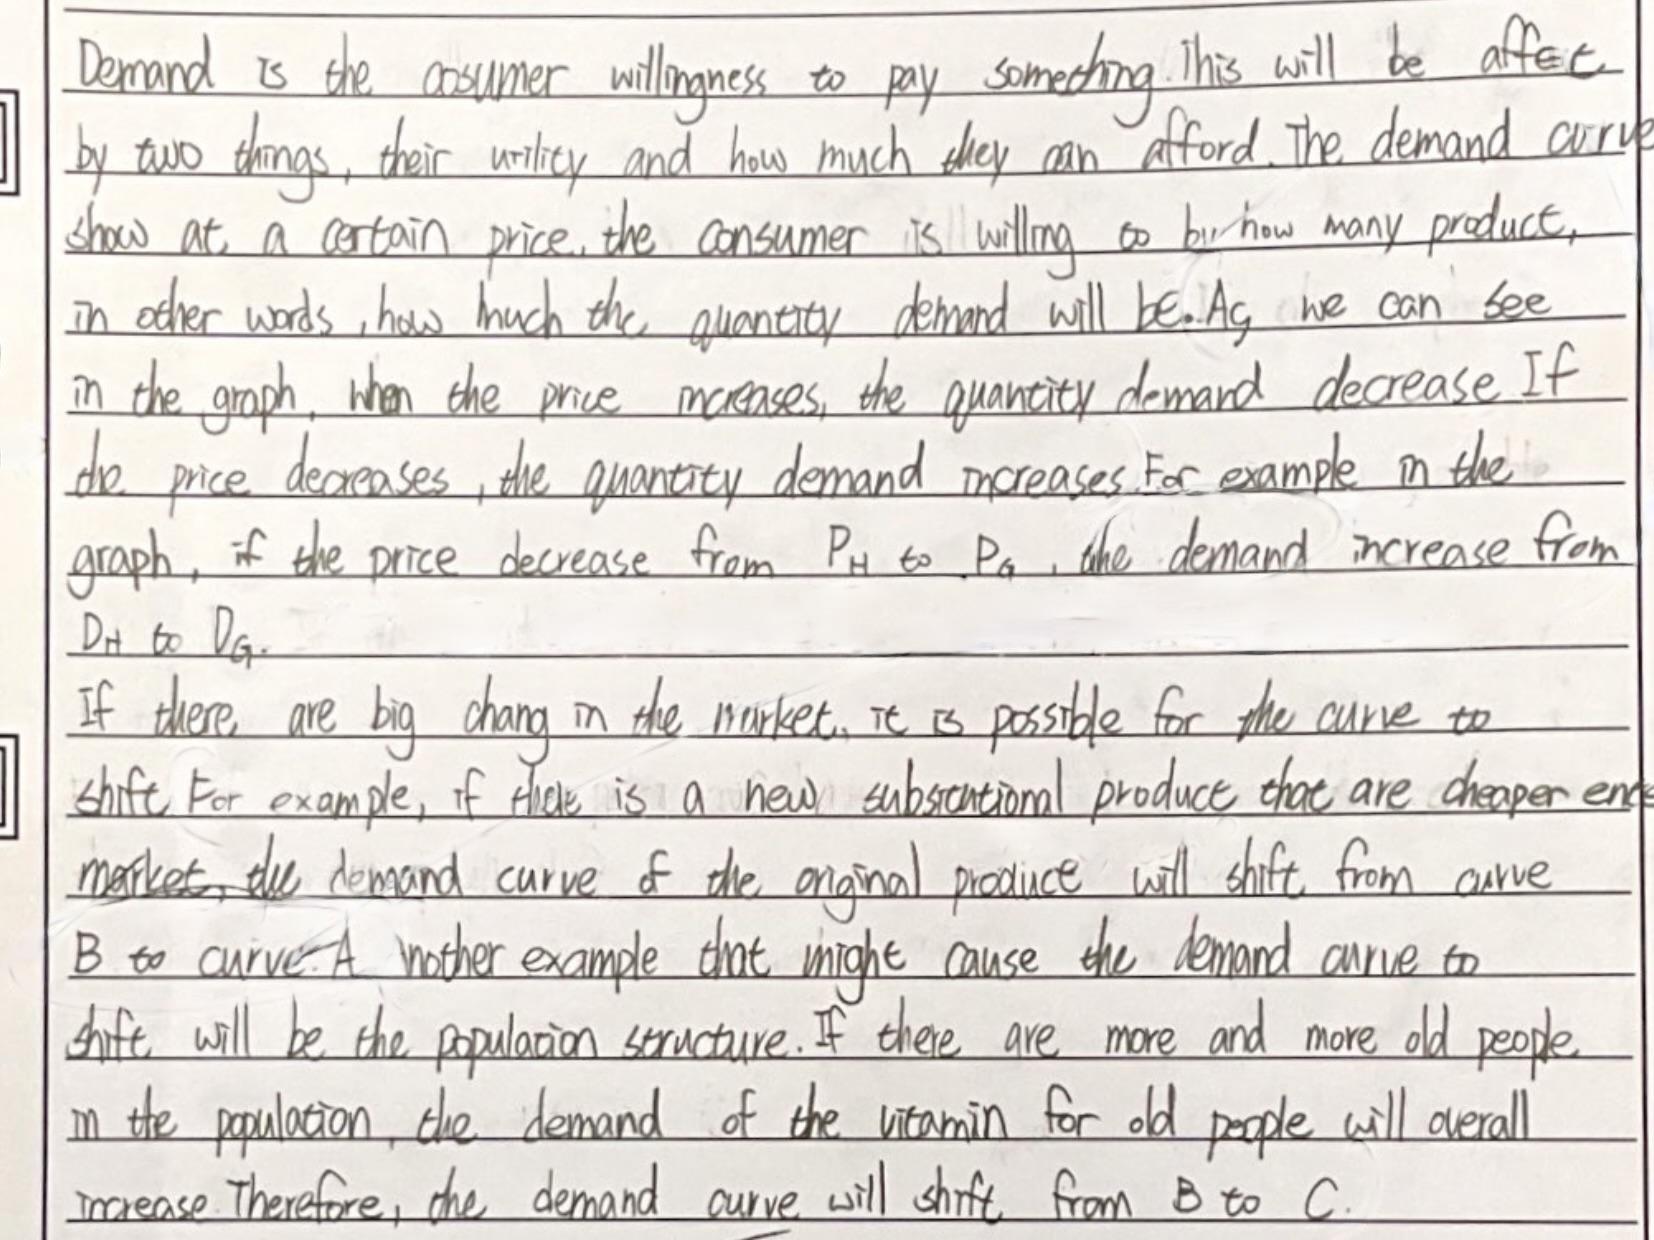 Demand is the cosumer willingness to pay something. This will be affect
by two things, their utility and how much they can afford. The demand curve
show at a certain price, the consumer is willing to by how many product,
in other words, how much the quantity demand will be. As we can see
in the graph, when the price increases, the quantity demand decrease If
the price decreases, the quantity demand increases. For example in the
graph, if the price decrease from PH to PG, the demand increase from
DH to DG.
If there are big chang in the market, it is possible for the curve to
shift For example, if there is a new substitutional product that are cheaper
market, the demand curve of the original product will shift from curve
B to curve A Another example that might cause the demand curve to
shift will be the population structure. If there are more and more old people
in the population, the demand of the vitamin for old people will overall
increase. Therefore, the demand curve will shift from B to C.